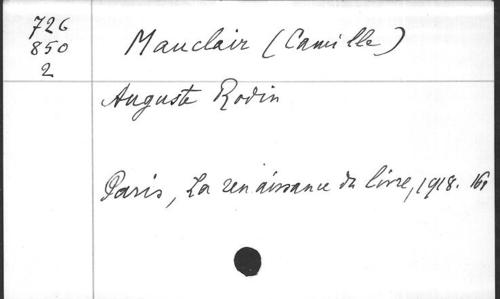 726
850
2
Mauclair (Camille)
Auguste Rodin
Paris, La renaissance du livre, 1918. 16º